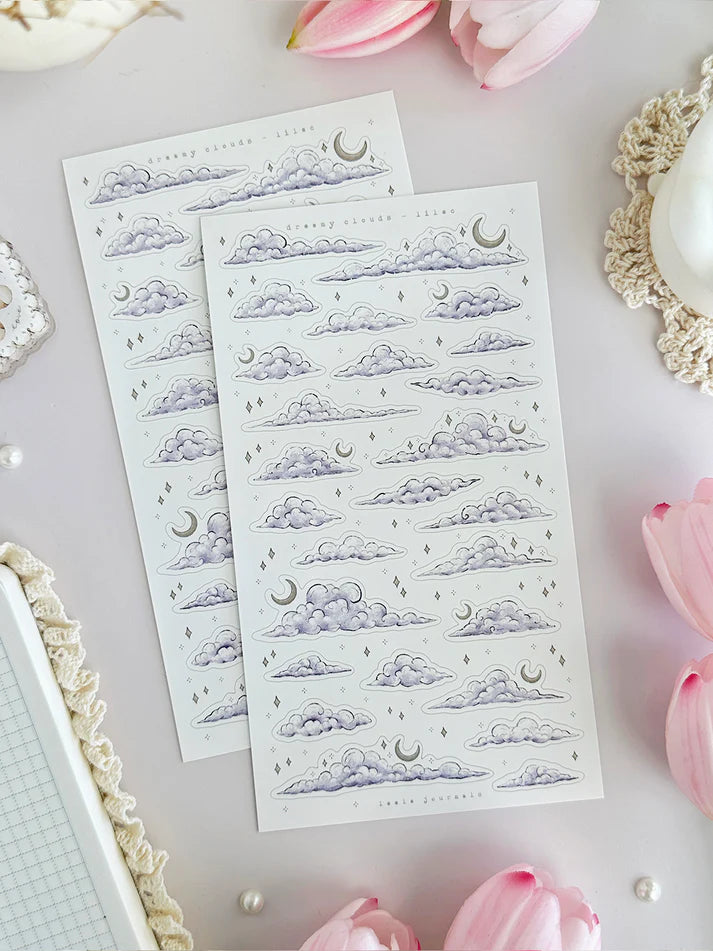 dreamy clouds - lilac
dreamy clouds - lilac
leale journals